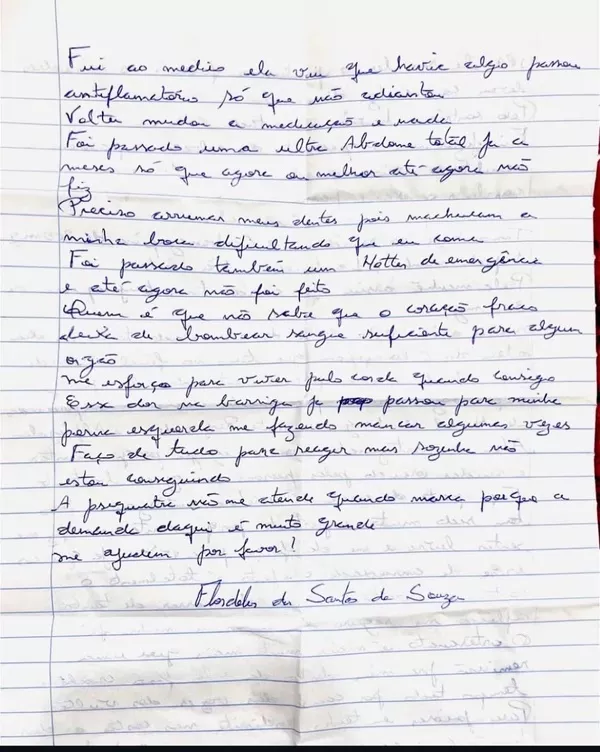 Fui ao medico ela viu que havia algo passou
antiflamatório só que não adiantou
Voltei mudou a medicação e nada
Foi passado uma ultra Abdome total ja a
meses só que agora ou melhor até agora não
fiz
Preciso arrumar meus dentes pois machucam a
minha boca dificultando que eu coma
Foi passado também um Hotter de emergência
e até agora não foi feito
Quem é que não sabe que o coração fraco
deixa de bombear sangue suficiente para algum
orgão
me esforço para viver pulo corda quando consigo
Essa dor na barriga ja passou para minha
perna esquerda me fazendo mancar algumas vezes
Faço de tudo para reagir mas sozinha não
estou conseguindo
A psiquiatra não me atende quando marca porque a
demanda daqui é muito grande
me ajudem por favor!
Flordelis dos Santos de Souza